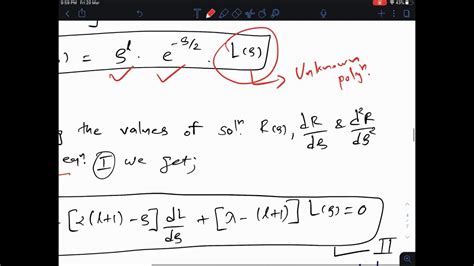 8:59 PM Fri 20 Mar
43%
) = ϱˡ · e^{-ϱ/2} · L(ϱ)
Unknown
polyⁿ.
the values of solⁿ. R(ϱ), dR/dϱ & d²R/dϱ²
eqⁿ. I we get;
[2(l+1) - ϱ] dL/dϱ + [λ - (l+1)] L(ϱ) = 0
II